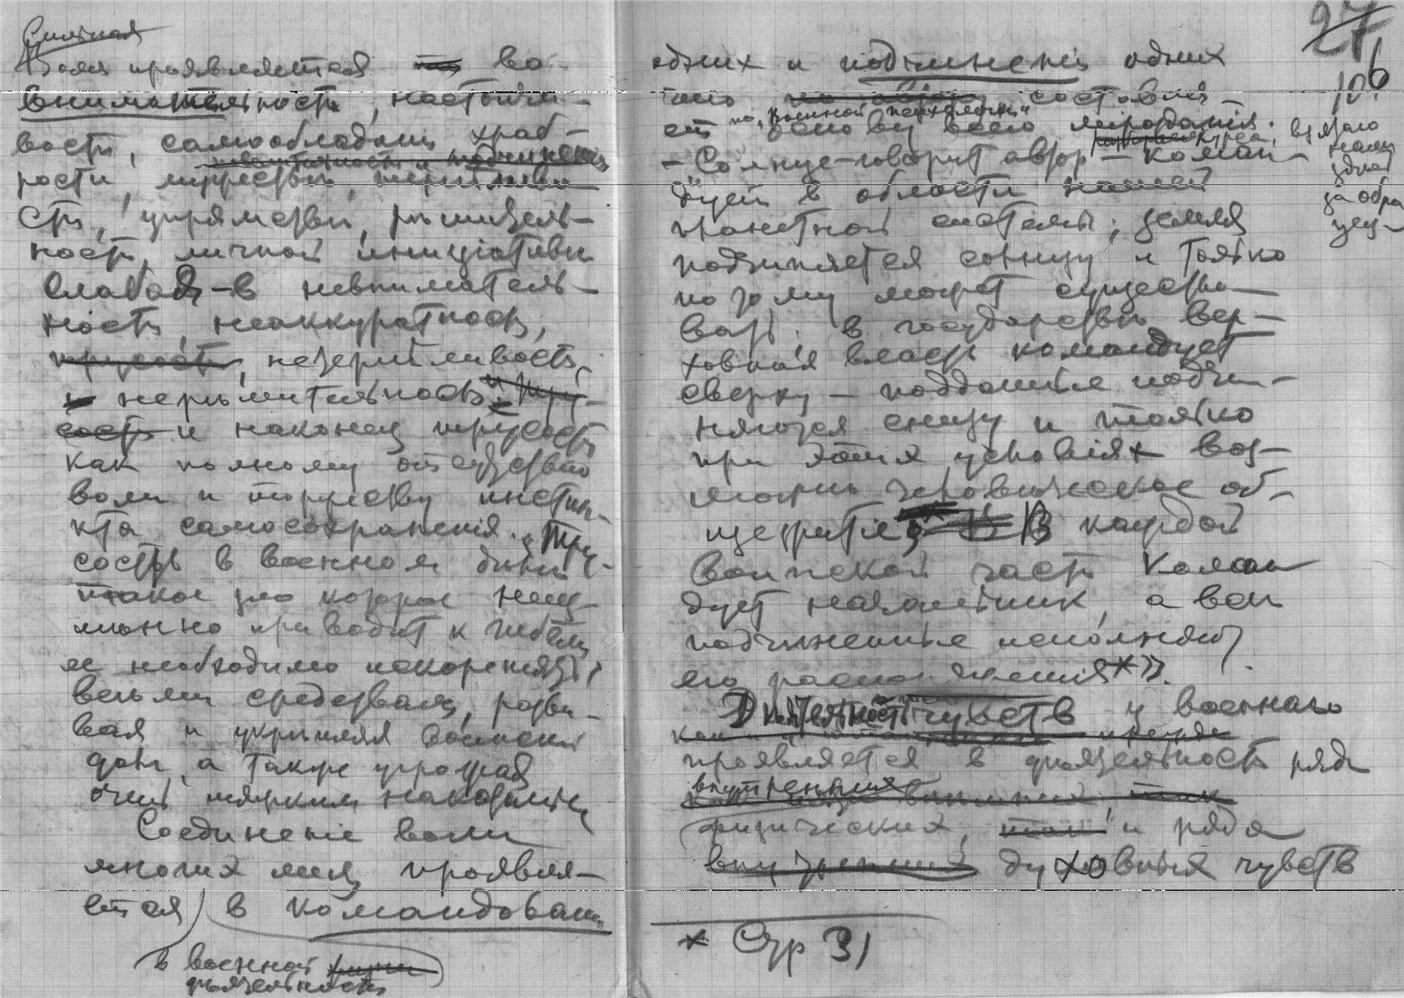 Сильная
Воля проявляется во
внимательности, настойчи-
вости, самообладании, храб-
рости, мужестве,
сти, упрямстве, решитель-
ности, личной инициативы
Слабая - в невниматель-
ности, неаккуратности,
трусости, нетерпеливости,
и нерешительности и тру-
сости и наконец трусости
как полному отсутствию
воли и торжеству инстин-
кта самосохранения. Тру-
сость в военном
такое зло которое неиз-
менно приводит к гибели
ее необходимо искоренять
всеми средствами, разви-
вая и укрепляя воинский
дух, а также угрожая
очень тяжким наказанием
Соединение воли
многих лиц проявля-
ется в командовании
в военной жизни
деятельности
27
106
одних и подчинении одних
что составля-
по „военной психологии“
ет основу всего мироздания.
- „Солнце - говорит автор - коман-
дует в области нашей
планетной системы; земля
подчиняется солнцу и только
потому может существо-
вать. в государстве вер-
ховная власть командует
сверху - подданные подчи-
няются снизу и только
при этих условиях воз-
можно человеческое об-
щежитие В каждой
воинской части коман
дует начальник, а все
подчиненные исполняют
его распоряжения*».
Деятельность чувств у военнаго
проявляется в деятельности ряда
внутренния
физических, так и ряда
внутренних духовных чувств
* Стр 31